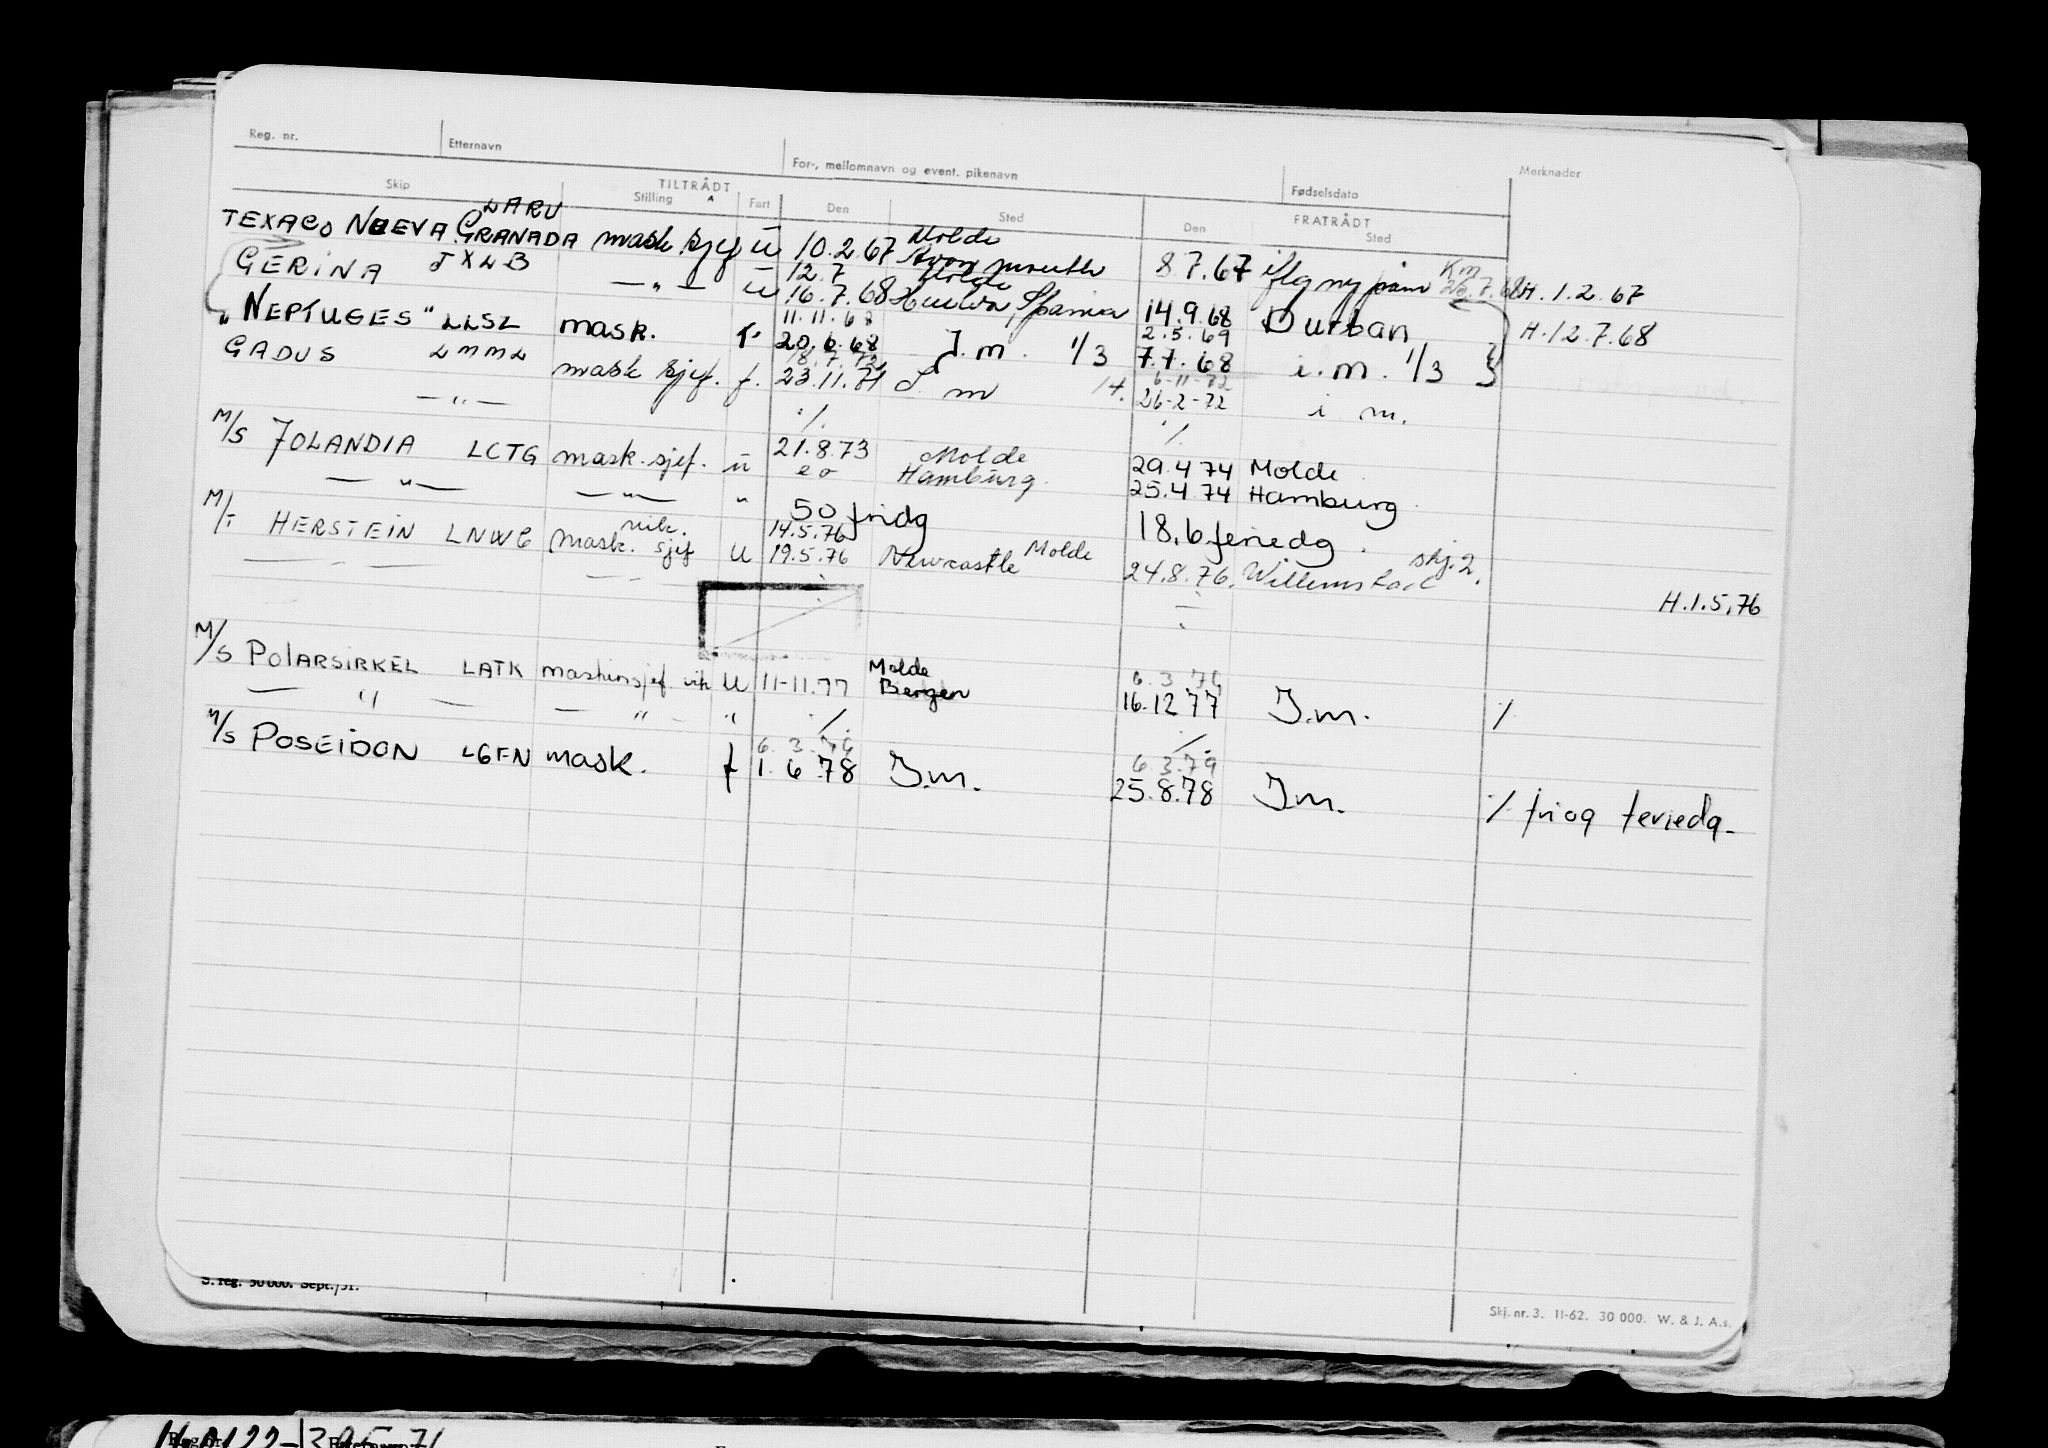 Reg. nr. Etternavn For-, mellomnavn og event. pikenavn Fødselsdato Merknader
TILTRÅDT FRATRÅDT
Skip Stilling Fart Den Sted Den Sted
LARU
TEXACO NUEVA GRANADA mask. sjef ū 10.2.67 Molde 8.7.67 iflg ny påm H.1.2.67
12.7 Avonmouth
GERINA JXLB — " — u 16.7.68 Molde Huelva, Spania 14.9.68 Durban H.12.7.68
11.11.68 2.5.69
"NEPTUGES" LLSL mask. f. 20.6.68 I.m. 1/3 7.7.68 i.m. 1/3
18.7.72 6-11-72
GADUS LMML mask sjef. f. 23.11.71 I m 26-2-72 i m.
— " — ·/. ·/.
M/S JOLANDIA LCTG mask. sjef. ū 21.8.73 Molde 29.4 74 Molde
— " — — " — " Hamburg 25.4 74 Hamburg
50 fridg 18,6 feriedg.
M/T HERSTEIN LNWC mask. sjef vik. U 14.5.76 Molde skj. 2.
19.5.76 Newcastle 24.8.76. Willemstad
H.1.5.76
M/S POLARSIRKEL LATK maskinsjef. vik U 11-11.77 Molde
Bergen 16.12 77 I.m. ·/.
— " — — " — " ·/. ·/.
6.3.79 6.3.79
M/S POSEIDON LGFN mask. f 1.6.78 I.m. 25.8.78 I.m. ·/. fri og feriedg.
S. reg. 30 000. Sept./51.
Skj. nr. 3. 11-62. 30 000. W. & J. A.s.
Reg. nr.